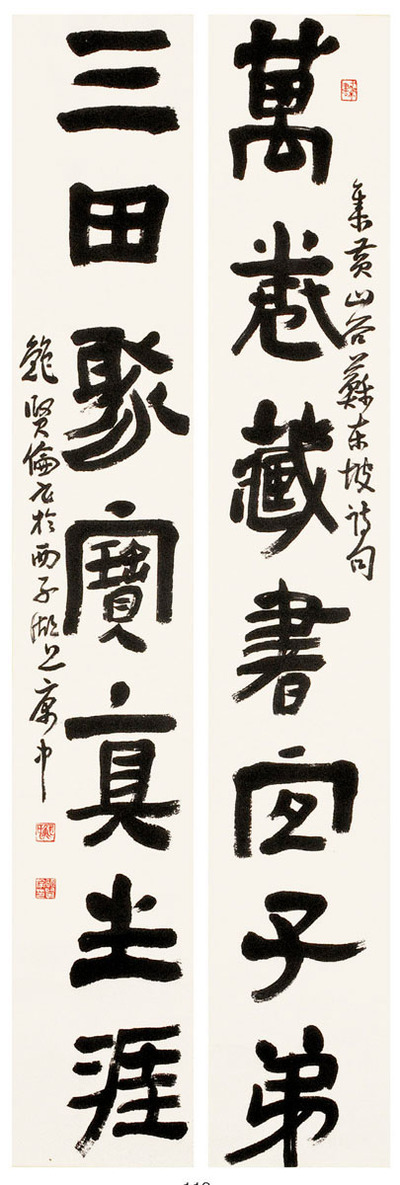 集黃山谷蘇東坡詩句
萬卷藏書宜子弟
三田聚寶真生涯
鮑賢倫書於西子湖上